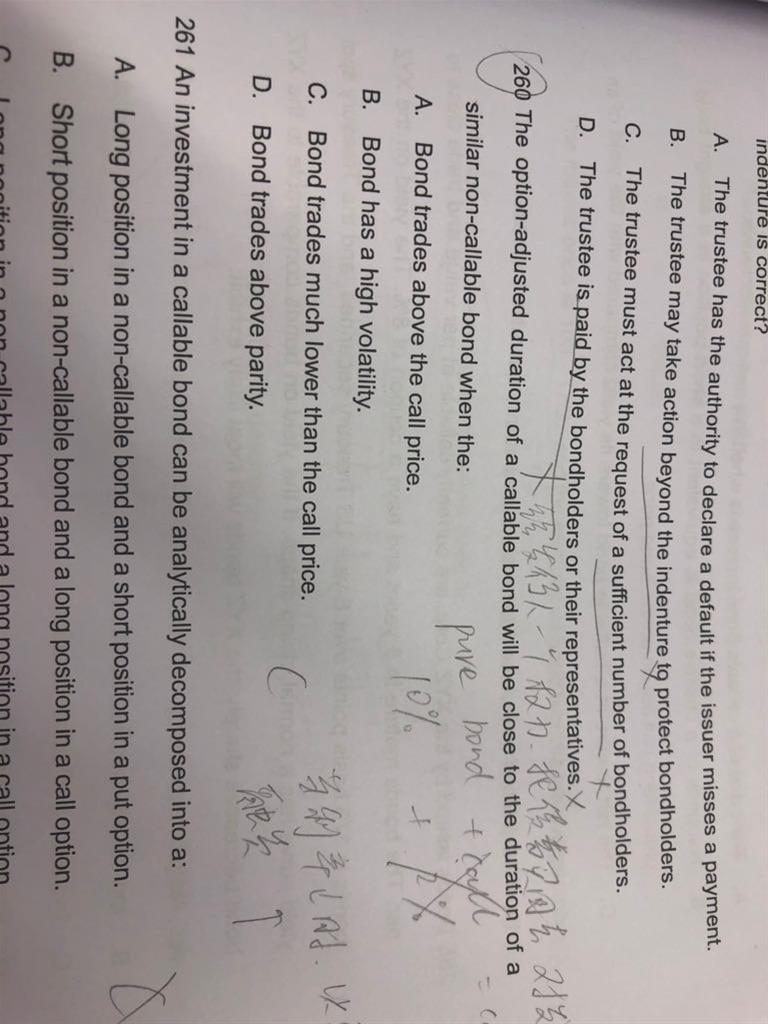 indenture is correct?
A. The trustee has the authority to declare a default if the issuer misses a payment.
B. The trustee may take action beyond the indenture to protect bondholders.
C. The trustee must act at the request of a sufficient number of bondholders.
D. The trustee is paid by the bondholders or their representatives.
260 The option-adjusted duration of a callable bond will be close to the duration of a
similar non-callable bond when the:
pure bond + call =
A. Bond trades above the call price.
10% + 12%
B. Bond has a high volatility.
C. Bond trades much lower than the call price.
D. Bond trades above parity.
C
261 An investment in a callable bond can be analytically decomposed into a:
A. Long position in a non-callable bond and a short position in a put option.
B. Short position in a non-callable bond and a long position in a call option.
C. Long position in a non-callable bond and a long position in a call option